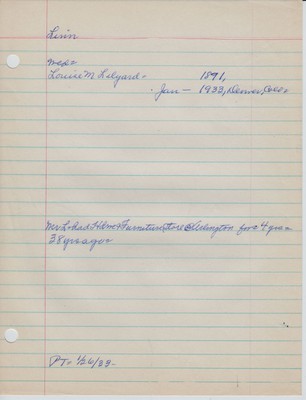 Linn
Mep=
Louise M Lilyard=   1891,
Jan— 1933, Denver, Colo=
Mr L= had Hdw + Furniture Store @ Arlington for 4 yrs=
38 yrs ago=
PT= 1/26/33-